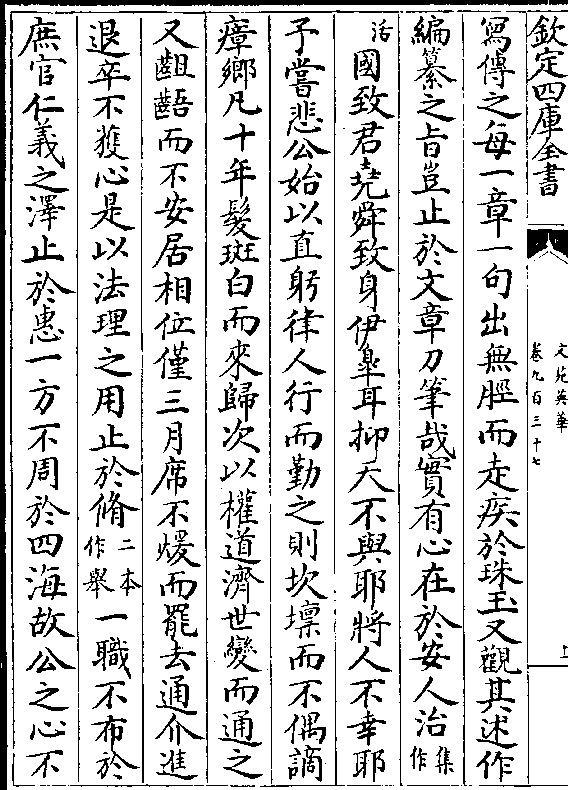 欽定四庫全書
文苑英華
卷九百三十七
寫傳之每一章一句出無脛而走疾於珠玉又觀其述作
編纂之旨豈止於文章刀筆哉實有心在於安人治集作
活國致君堯舜致身伊臯耳抑天不與耶將人不幸耶
予嘗悲公始以直躬律人行而勤之則坎壈而不偶謫
瘴鄉凡十年髮斑白而來歸次以權道濟世變而通之
又齟齬而不安居相位僅三月席不煖而罷去通介進
退卒不獲心是以法理之用止於脩二本作舉一職不布於
庶官仁義之澤止於惠一方不周於四海故公之心不